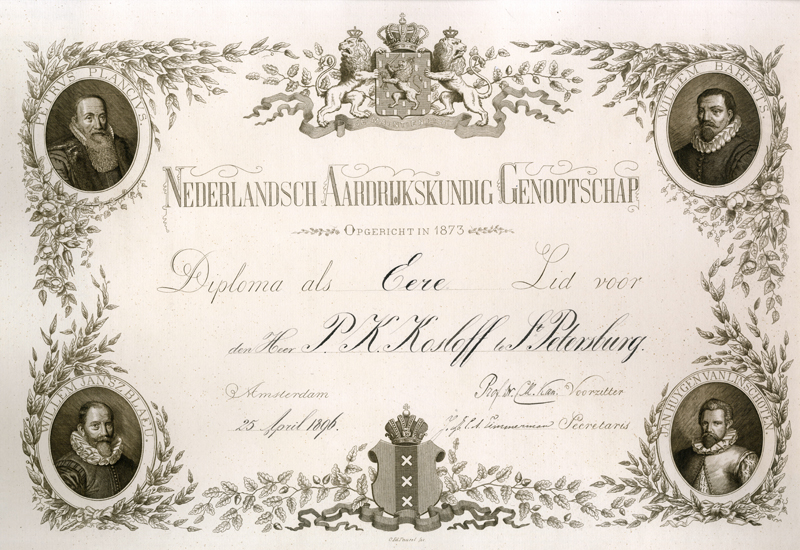 PETRUS PLANCIUS.
WILLEM BARENTS.
NEDERLANDSCH AARDRIJKSKUNDIG GENOOTSCHAP
OPGERICHT IN 1873
Diploma als Eere Lid voor
den Heer P. K. Kosloff te St. Petersburg.
Amsterdam
Prof. Dr. C. M. Kan. Voorzitter
25 April 1896.
Secretaris
WILLEM JANSZ. BLAEU.
JAN HUYGEN VAN LINSCHOTEN